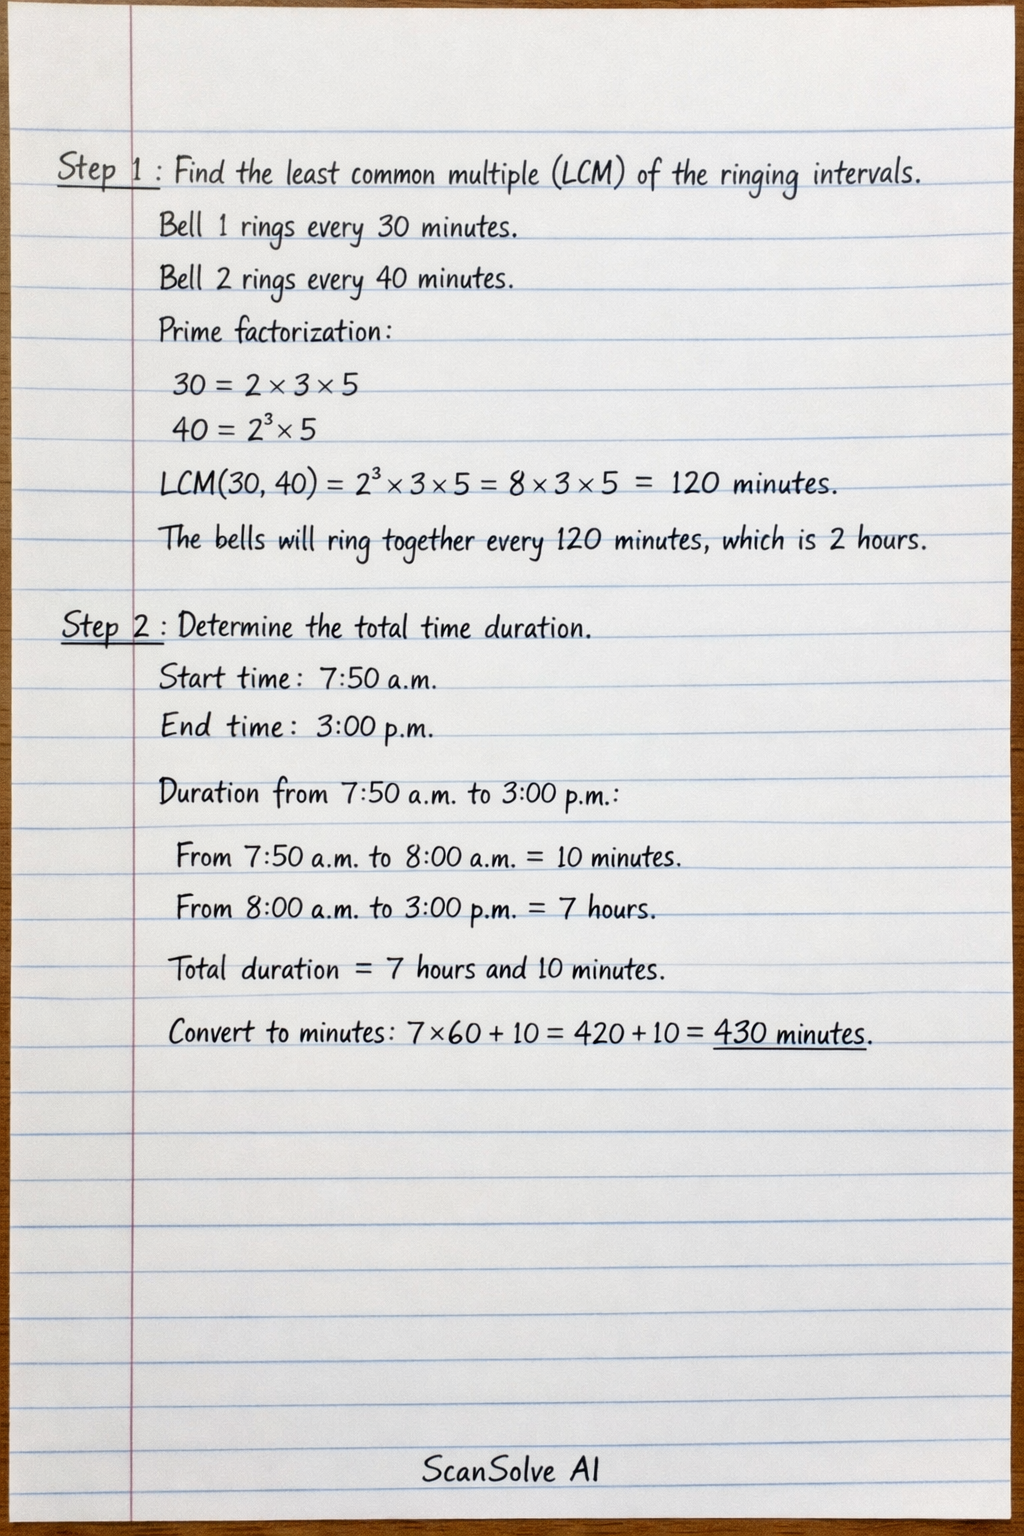 Step 1 : Find the least common multiple (LCM) of the ringing intervals.
Bell 1 rings every 30 minutes.
Bell 2 rings every 40 minutes.
Prime factorization:
30 = 2 × 3 × 5
40 = 2³ × 5
LCM(30, 40) = 2³ × 3 × 5 = 8 × 3 × 5 = 120 minutes.
The bells will ring together every 120 minutes, which is 2 hours.
Step 2 : Determine the total time duration.
Start time: 7:50 a.m.
End time: 3:00 p.m.
Duration from 7:50 a.m. to 3:00 p.m.:
From 7:50 a.m. to 8:00 a.m. = 10 minutes.
From 8:00 a.m. to 3:00 p.m. = 7 hours.
Total duration = 7 hours and 10 minutes.
Convert to minutes: 7×60 + 10 = 420 + 10 = 430 minutes.
ScanSolve AI